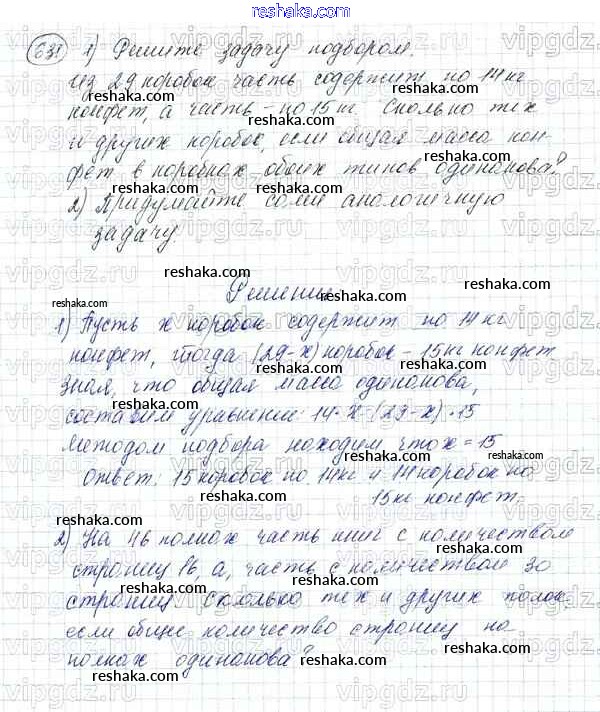 reshaka.com
631 1) Решите задачу подбором.
Из 29 коробок часть содержит по 14 кг
reshaka.com reshaka.com reshaka.com
конфет, а часть – по 15 кг. Сколько тех
и других коробок, если общая масса кон-
reshaka.com reshaka.com reshaka.com
фет в коробках обоих типов одинакова?
2) Придумайте сами аналогичную
reshaka.com reshaka.com
задачу.
reshaka.com reshaka.com
Решение
reshaka.com
1) Пусть x коробок содержит по 14 кг
reshaka.com reshaka.com
конфет, тогда (29-x) коробок – 15 кг конфет
Зная, что общая масса одинакова,
reshaka.com reshaka.com
составим уравнение: 14·x=(29-x)·15
Методом подбора находим что x=15
reshaka.com
Ответ: 15 коробок по 14 кг и 14 коробок по
reshaka.com
15 кг конфет.
reshaka.com reshaka.com
2) На 46 полках часть книг с количеством
reshaka.com
страниц 16, а, часть с количеством 30
reshaka.com reshaka.com
страниц сколько тех и других полок,
если общее количество страниц на
reshaka.com reshaka.com
полках одинакова?
reshaka.com
reshaka.com